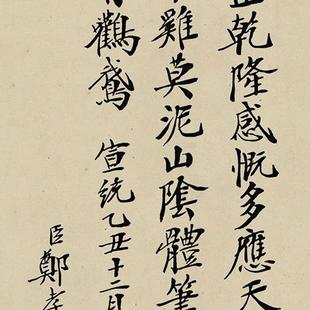 乾隆感慨多應天
雞莫泥山陰體筆
鸛鵞 宣統乙丑十二月
臣鄭孝